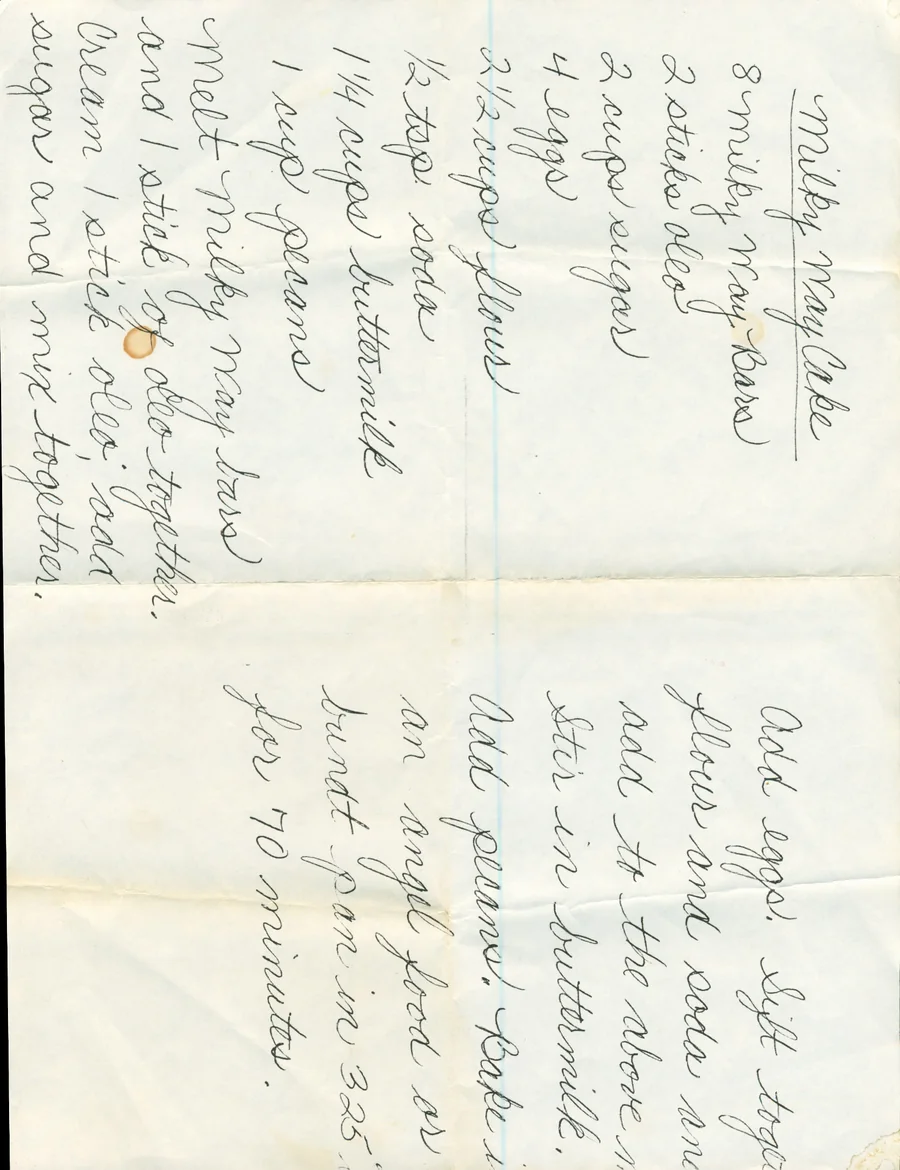 Milky Way Cake
8 Milky Way Bars
2 sticks oleo
2 cups sugar
4 eggs
2 1/2 cups flour
1/2 tsp. soda
1 1/4 cups buttermilk
1 cup pecans
Melt Milky Way bars
and 1 stick of oleo together.
Cream 1 stick oleo; add
sugar and mix together.
Add eggs. Sift toge
flour and soda an
add to the above m
Stir in buttermilk.
Add pecans. Bake i
an angel food or
bundt pan in 325°
for 70 minutes.